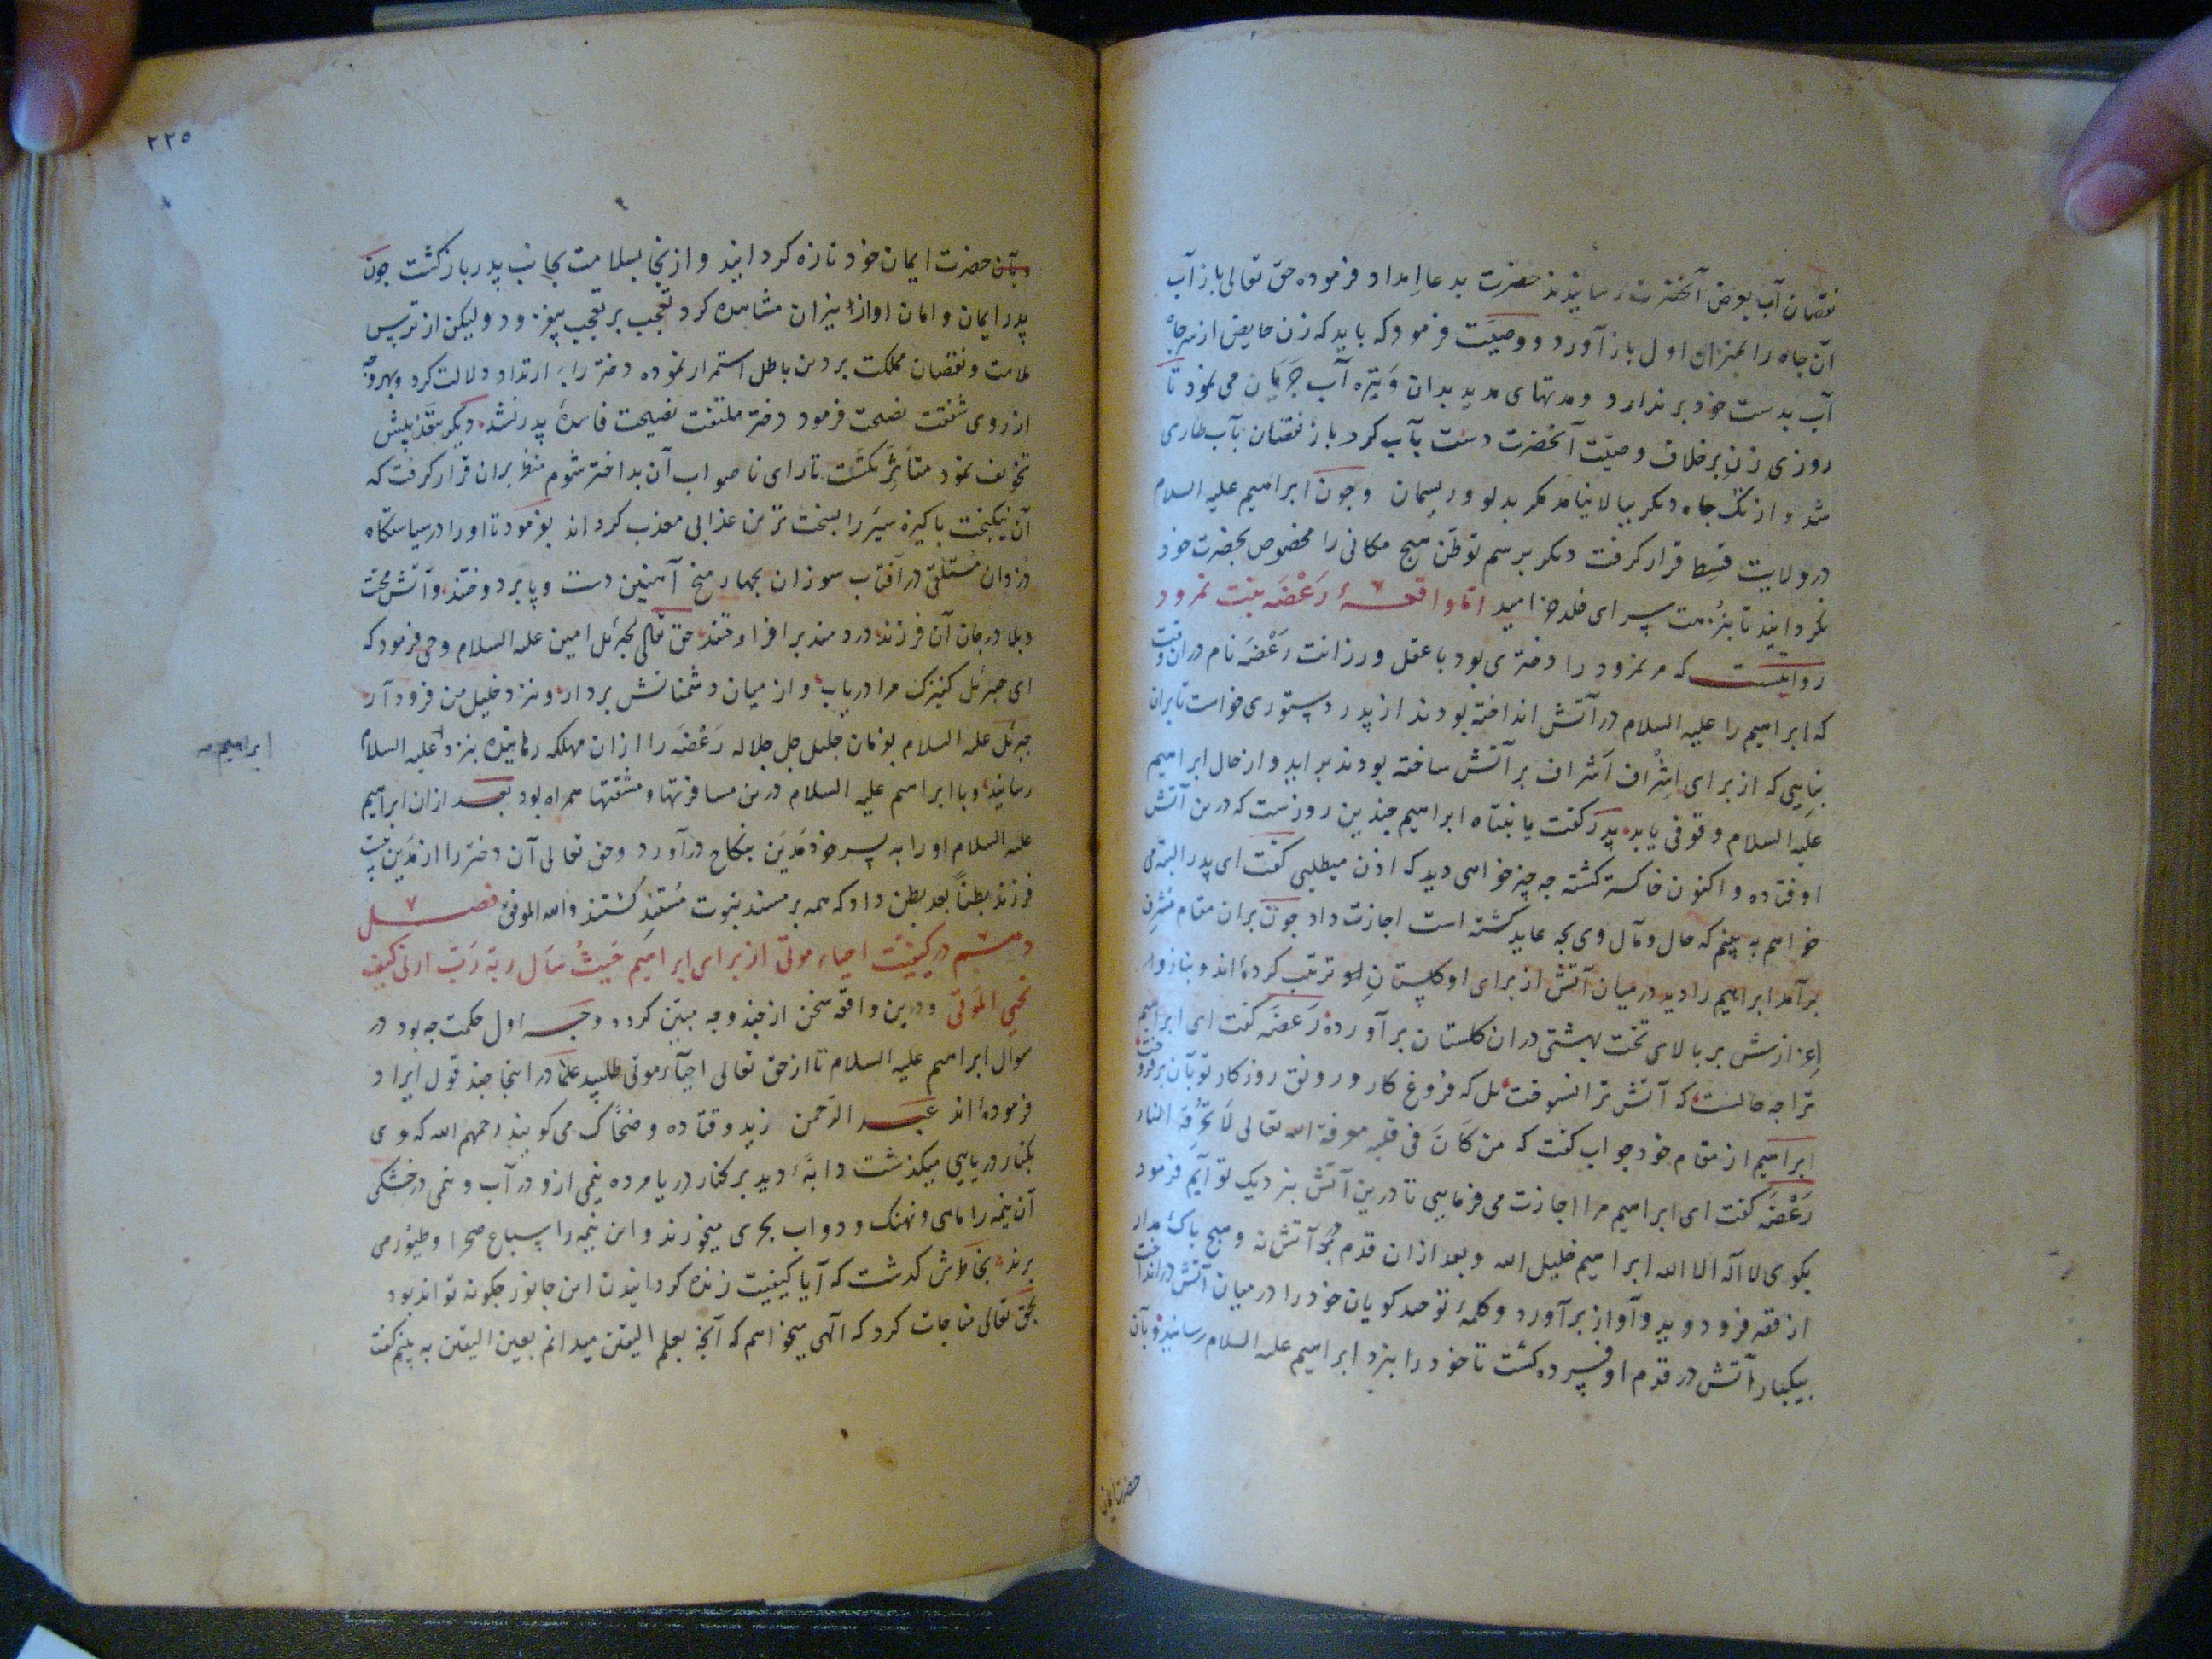 نقصان آب بعرض آنحضرت رسانیدند حضرت بدعا امداد فرموده حق تعالی باز آب
آن جاه را بمنزان اول باز آورد و وصیت فرمود که باید که زن حایض از سر جاه
آب بدست خود برندارد و مدتهای مدید بدان وتیره آب جریان می نمود تا
روزی زن برخلاف وصیت آنحضرت دست بآب کرد باز نقصان بآب طاری
شد و از تک جاه دیکر ببالا نیامد مکر بدلو و ریسمان و جون ابراهیم علیه السلام
در ولایت قسط قرار کرفت دیکر برسم توطن هیج مکانی را مخصوص بحضرت خود
نکردانید تا بنزهت سرای خلد خرامید اما واقعهٔ رعضه بنت نمرود
روایتست که مر نمرود را دختری بود با عقل و رزانت رعضه نام در ان وقت
که ابراهیم را علیه السلام در آتش انداخته بودند از پدر دستوری خواست تا بران
بنایی که از برای اشراف اشراف بر آتش ساخته بودند براید و از حال ابراهیم
علیه السلام وقوفی یابد پدر کفت یا بنتاه ابراهیم جندین روزست که درین آتش
اوفتاده و اکنون خاکستر کشته جه جیز خواهی دید که اذن میطلبی کفت ای پدر البته می
خواهم به بینم که حال و مآل وی بجه عاید کشته است اجازت داد جون بران مقام مشرف
برآمد ابراهیم را دید در میان آتش از برای او کلستان ترتیب کرده اند و بناز و
اعزازش بر بالای تخت بهشتی دران کلستان برآورده رعضه کفت ای ابراهیم
ترا جه حالست که آتش ترا نسوخت بل که فروغ کار و رونق روزکار تو بآن برافروخت
ابراهیم از مقام خود جواب کفت که من کان فی قلبه معرفة الله تعالی لا تحرقه النار
رعضه کفت ای ابراهیم مرا اجازت می فرمایی تا درین آتش بنزدیک تو آیم فرمود
بکوی لا اله الا الله ابراهیم خلیل الله و بعد ازان قدم در آتش نه و هیج باک مدار
از قصر فرود دوید و آواز برآورد و کلمهٔ توحید کویان خود را در میان آتش در انداخت
بیکبار آتش در قدم او فسرده کشت تا خود را بنزد ابراهیم علیه السلام رسانید و بآن
حضرت ایمان
٢٢٥
و بآن حضرت ایمان خود تازه کردانید و ازینجا بسلامت بجانب پدر بازکشت جون
پدر ایمان و امان او از نیران مشاهده کرد تعجب بر تعجب بیفزود ولیکن از ترس
ملامت و نقصان مملکت بر دین باطل استمرار نموده دختر را بر ارتداد دلالت کرد و بهر وجه
از روی شفقت نصحت فرمود دختر ملتفت نصیحت فاسدهٔ پدر نشد دیکر بتعذیبش
تخویف نمود متاثر نکشت تا رای ناصواب آن بداختر شوم منظر بران قرار کرفت که
آن نیکبخت پاکیزه سیر را بسخت ترین عذابی معذب کرداند بفرمود تا او را در سیاستکاه
دزدان مستلقی در آفتاب سوزان بجهار میخ آهنین دست و پا بردوختند و آتش محنت
و بلا در جان آن فرزند دردمند برافراوختند حق تعالی بجبرئل امین علیه السلام وحی فرمود که
ای جبرئل کنیزک مرا دریاب و از میان دشمنانش بردار و بنزد خلیل من فرود آر
جبرئل علیه السلام بفرمان جلیل جل جلاله رعضه را ازان مهلکه رهانیده بنزد علیه السلام
ابراهیم
رسانید و با ابراهیم علیه السلام درین مسافرتها و مشقتها همراه بود بعد ازان ابراهیم
علیه السلام او را به پسر خود مدین بنکاح درآورد و حق تعالی آن دختر را از مدین بیست
فرزند بطنا بعد بطن داد که همه بر مسند نبوت مستند کشتند والله الموفق فصل
هشتم در کیفیت احیاء موتی از برای ابراهیم حیث سأل ربه رب ارنی کیف
تحیی الموتی و درین واقعه سخن از جند وجه مبین کردد وجه اول حکمت جه بود در
سوال ابراهیم علیه السلام تا از حق تعالی احیآء موتی طلبید علما در اینجا جند قول ایراد
فرموده اند عبد الرحمن زید و قتاده و ضحاک می کویند رحمهم الله که وی
بکنار دریایی میکذشت دابهٔ دید بر کنار دریا مرده نیمی ازو در آب و نیمی در خشکی
آن نیمه را ماهی و نهنک و دواب بحری میخورند و این نیمه را سباع صحرا و طیور می
برند بخاطرش کذشت که آیا کیفیت زنده کردانیدن این جانور جکونه تواند بود
بحق تعالی مناجات کرد که الهی میخواهم که آنجه بعلم الیقین میدانم بعین الیقین به بینم کفت